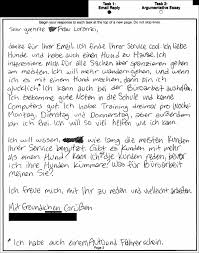 Task 1: Task 2:
Email Reply Argumentative Essay
Begin your response to each task at the top of a new page. Do not skip lines.
Sehr geehrte Frau Lorenki,
danke für Ihre Email. Ich finde Ihrer Service cool. Ich liebe
Hunde und habe auch einen Hund zu Hause. Ich
interessiere mich für alle Sachen aber spazieren gehen
am meisten. Ich will mehr wandern gehen, und wenn
ich es mit einem Hund machen, dann bin ich
glücklich. Ich kann auch bei der Büroarbeit aushelfen.
Ich bekomme gute Noten in die Schule und kenne
Computers gut. Ich habe Training dreimal pro Woche
Montag, Dienstag und Donnerstag, aber außerdem
bin ich frei. Ich will so viel helfen wie ich kann.
Ich will wissen, wie lang die meisten Kunden
Ihrer Service benutzt. Gibt es Kunden mit mehr
als einem Hund? Kann ich die Kunden reden, bevor
ich ihre Hunden kümmere? Was für Büroarbeit
meinen Sie?
Ich freue mich, mit Ihr zu reden und vielleicht arbeiten.
Mit Freundlichen Grüßen
Ich habe auch einen Führerschein.
Page 2